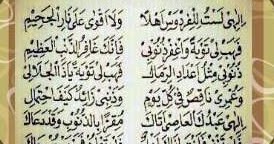 إِلٰهِى لَسْتُ لِلْفِرْدَوْسِ أَهْلًا وَلَا أَقْوٰى عَلٰى نَارِ الْجَحِيْمِ
فَهَبْ لِى تَوْبَةً وَاغْفِرْ ذُنُوْبِى فَإِنَّكَ غَافِرُ الذَّنْبِ الْعَظِيْمِ
ذُنُوْبِى مِثْلُ أَعْدَادِ الرِّمَالِ فَهَبْ لِى تَوْبَةً يَاذَا الْجَلَالِ
وَعُمْرِى نَاقِصٌ فِى كُلِّ يَوْمٍ وَذَنْبِى زَائِدٌ كَيْفَ احْتِمَالِى
إِلٰهِى عَبْدُكَ الْعَاصِى أَتَاكَ مُقِرًّا بِالذُّنُوْبِ وَقَدْ دَعَاكَ